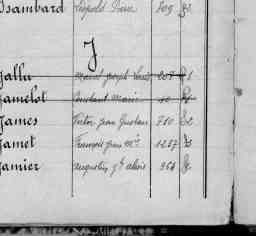 Isambard Léopold Pierre 209
J
Jalla Marié joseph Louis 208
Jamelot Constant Marie
James Victor jean Gustave 780
Jamet François jean Mie 1267
Jamier Augustin alexis 964